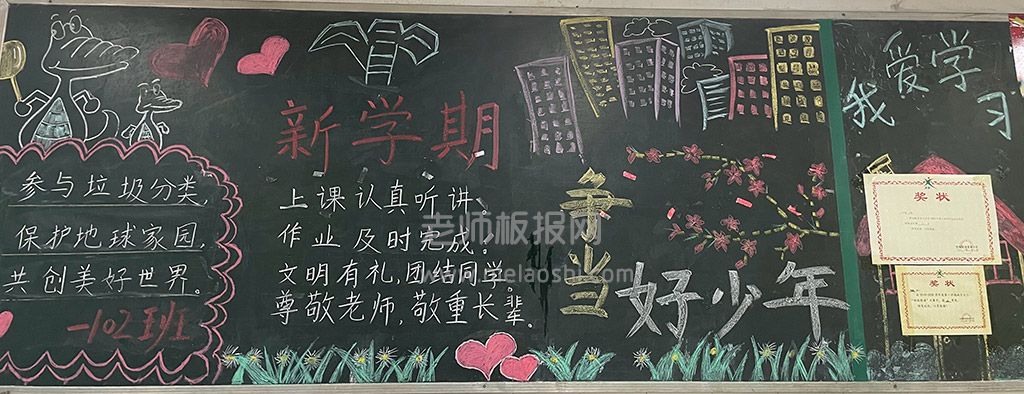 参与垃圾分类,
保护地球家园,
共创美好世界。
-102班
新学期
上课认真听讲,
作业及时完成!
文明有礼,团结同学。
尊敬老师,敬重长辈。
争当
好少年
我爱学习
奖状
奖状
老师板报网